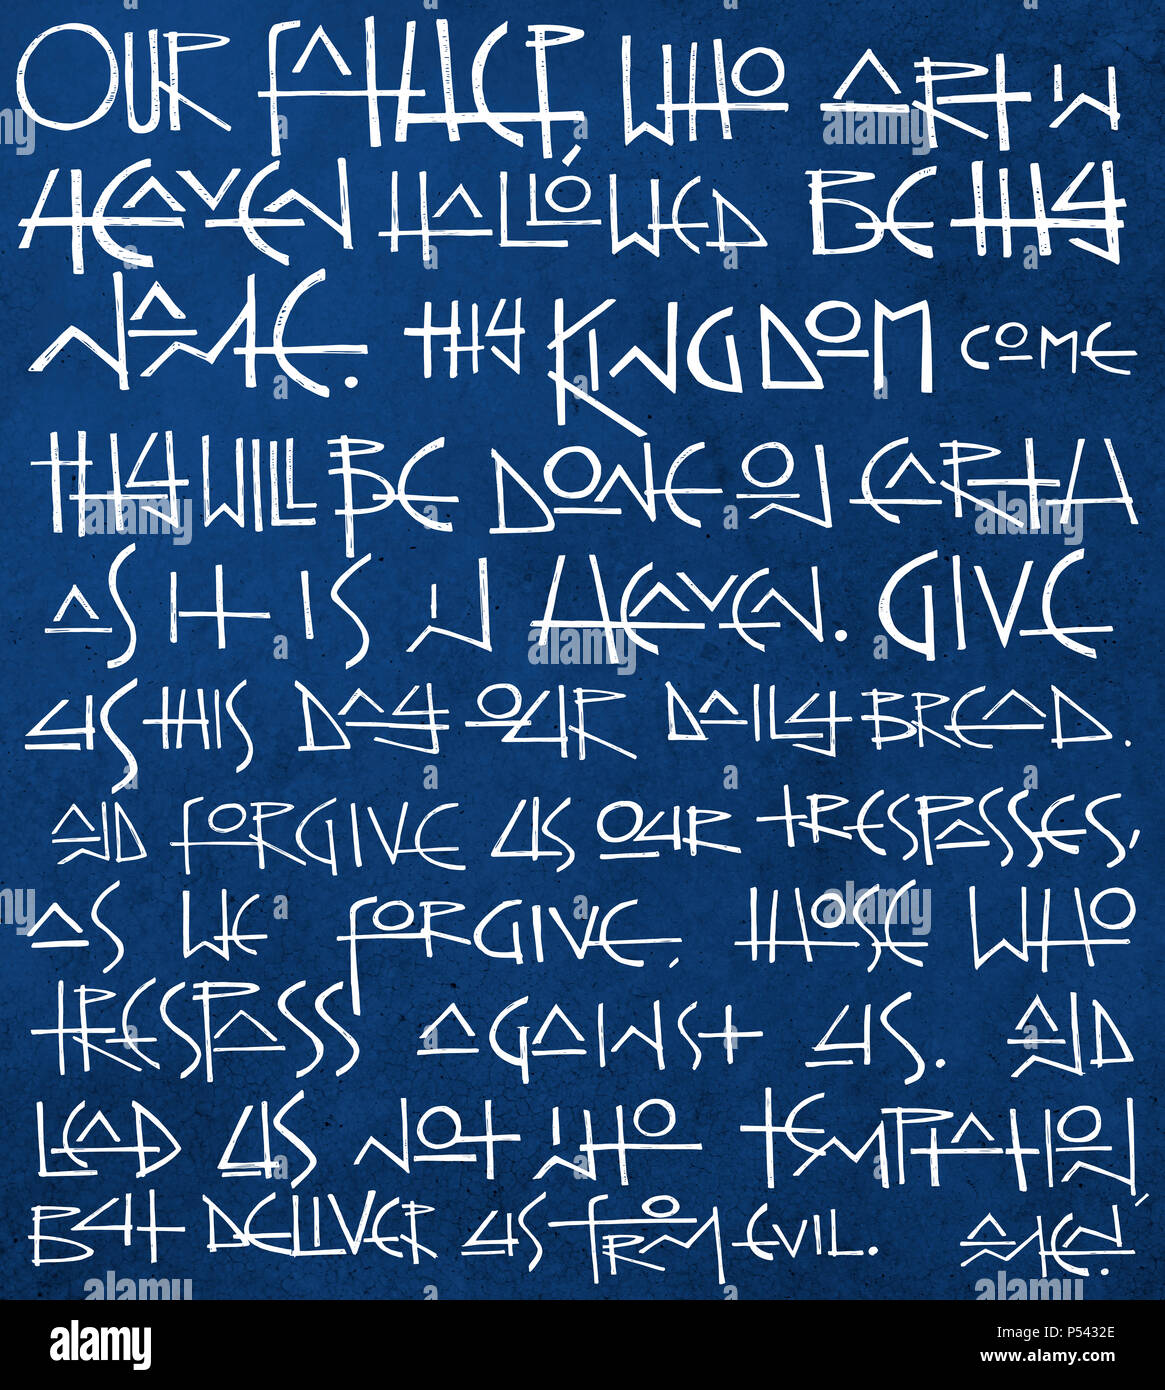 OUR FATHER WHO ART IN
HEAVEN HALLOWED BE THY
NAME. THY KINGDOM COME
THY WILL BE DONE ON EARTH
AS IT IS IN HEAVEN. GIVE
US THIS DAY OUR DAILY BREAD.
AND FORGIVE US OUR TRESPASSES,
AS WE FORGIVE, THOSE WHO
TRESPASS AGAINST US. AND
LEAD US NOT INTO TEMPTATION,
BUT DELIVER US FROM EVIL. AMEN.
alamy
Image ID: P5432E
www.alamy.com